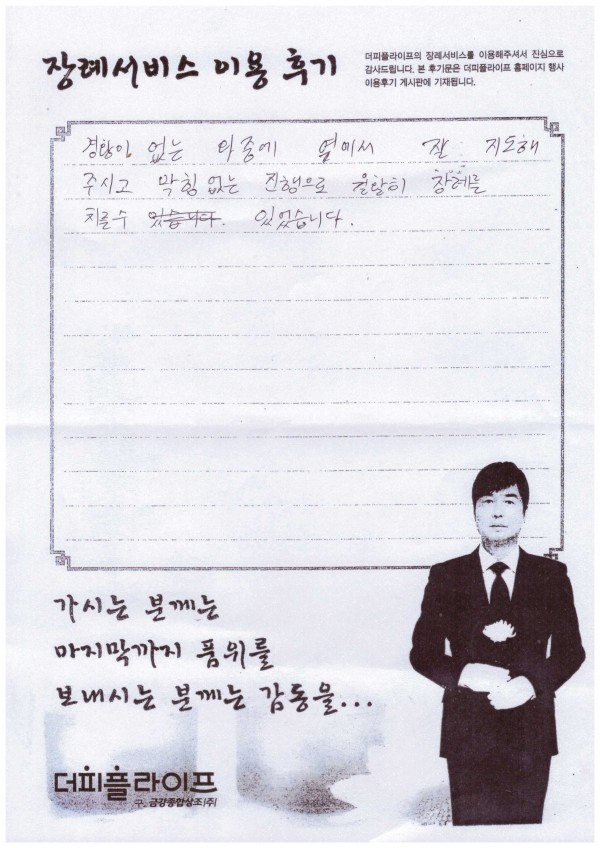 장례서비스 이용 후기
더피플라이프의 장례서비스를 이용해주셔서 진심으로
감사드립니다. 본 후기문은 더피플라이프 홈페이지 행사
이용후기 게시판에 기재됩니다.
경황이 없는 와중에 옆에서 잘 지도해
주시고 막힘없는 진행으로 원활히 장례를
치를수 있습니다. 있었습니다.
가시는 분께는
마지막까지 품위를
보내시는 분께는 감동을...
더피플라이프
구. 금강종합상조(주)